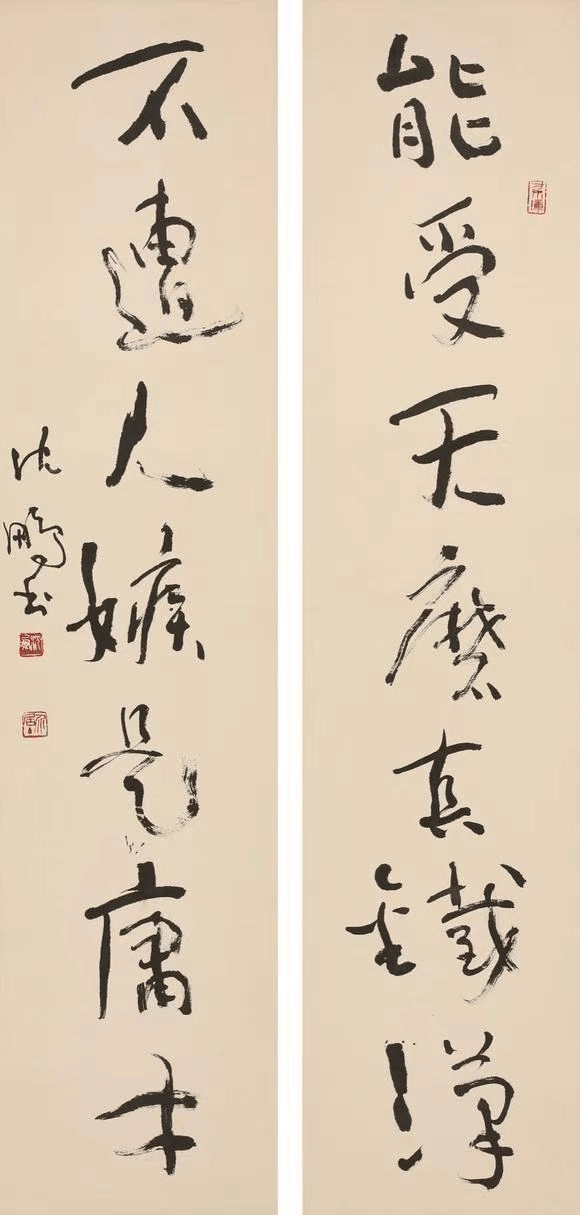 能受天磨真鐵漢
不遭人嫉是庸才
沈鹏书